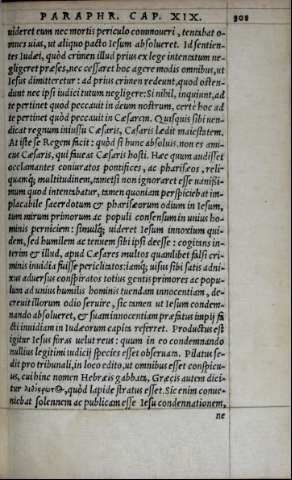 PARAPHR. CAP. XIX.
uideret eum nec mortis periculo commoueri, tentabat o-
mnes uias, ut aliquo pacto Iesum absolueret. Id sentien-
tes Iudæi, quòd crimen illud prius ex lege intentatum ne-
gligeret præses, nec cessaret hoc agere modis omnibus, ut
Iesus dimitteretur: ad prius crimen redeunt, quod osten-
dunt nec ipsi iudici tutum negligere: Si nihil, inquiunt, ad
te pertinet quod peccauit in deum nostrum, certè hoc ad
te pertinet quòd peccauit in Cæsarem. Quisquis sibi uen-
dicat regnum iniussu Cæsaris, Cæsaris lædit maiestatem.
At iste se Regem facit: quòd si hunc absoluis, non es ami-
cus Cæsaris, qui faueas Cæsaris hosti. Hæc quum audisset
occlamantes coniuratos pontifices, ac pharisæos, reli-
quamq́; multitudinem, tametsi non ignoraret esse uanissi-
mum quod intentabatur, tamen quoniam perspiciebat im-
placabile sacerdotum & pharisæorum odium in Iesum,
tum mirum primorum ac populi consensum in unius ho-
minis perniciem: simulq́; uideret Iesum innoxium qui-
dem, sed humilem ac tenuem sibi ipsi deesse: cogitans in-
terim & illud, apud Cæsares multos quamlibet falsi cri-
minis inuidia fuisse periclitatos: iamq́; uisus sibi satis adni-
xus aduersus conspiratos totius gentis primores ac popu-
lum ad unius humilis hominis tuendam innocentiam, de-
creuit illorum odio seruire, sic tamen ut Iesum condem-
nando absolueret, & suam innocentiam præfatus impij fa
cti inuidiam in Iudæorum capita referret. Productus est
igitur Iesus foras uelut reus: quum in eo condemnando
nullius legitimi iudicij species esset obseruata. Pilatus se-
dit pro tribunali, in loco edito, ut omnibus esset conspicu-
us, cui hinc nomen Hebræis gabbata, Græcis autem dici-
tur λιθόστρωτ<ος>, quòd lapide stratus esset. Sic enim conue-
niebat solennem ac publicam esse Iesu condemnationem,
ne